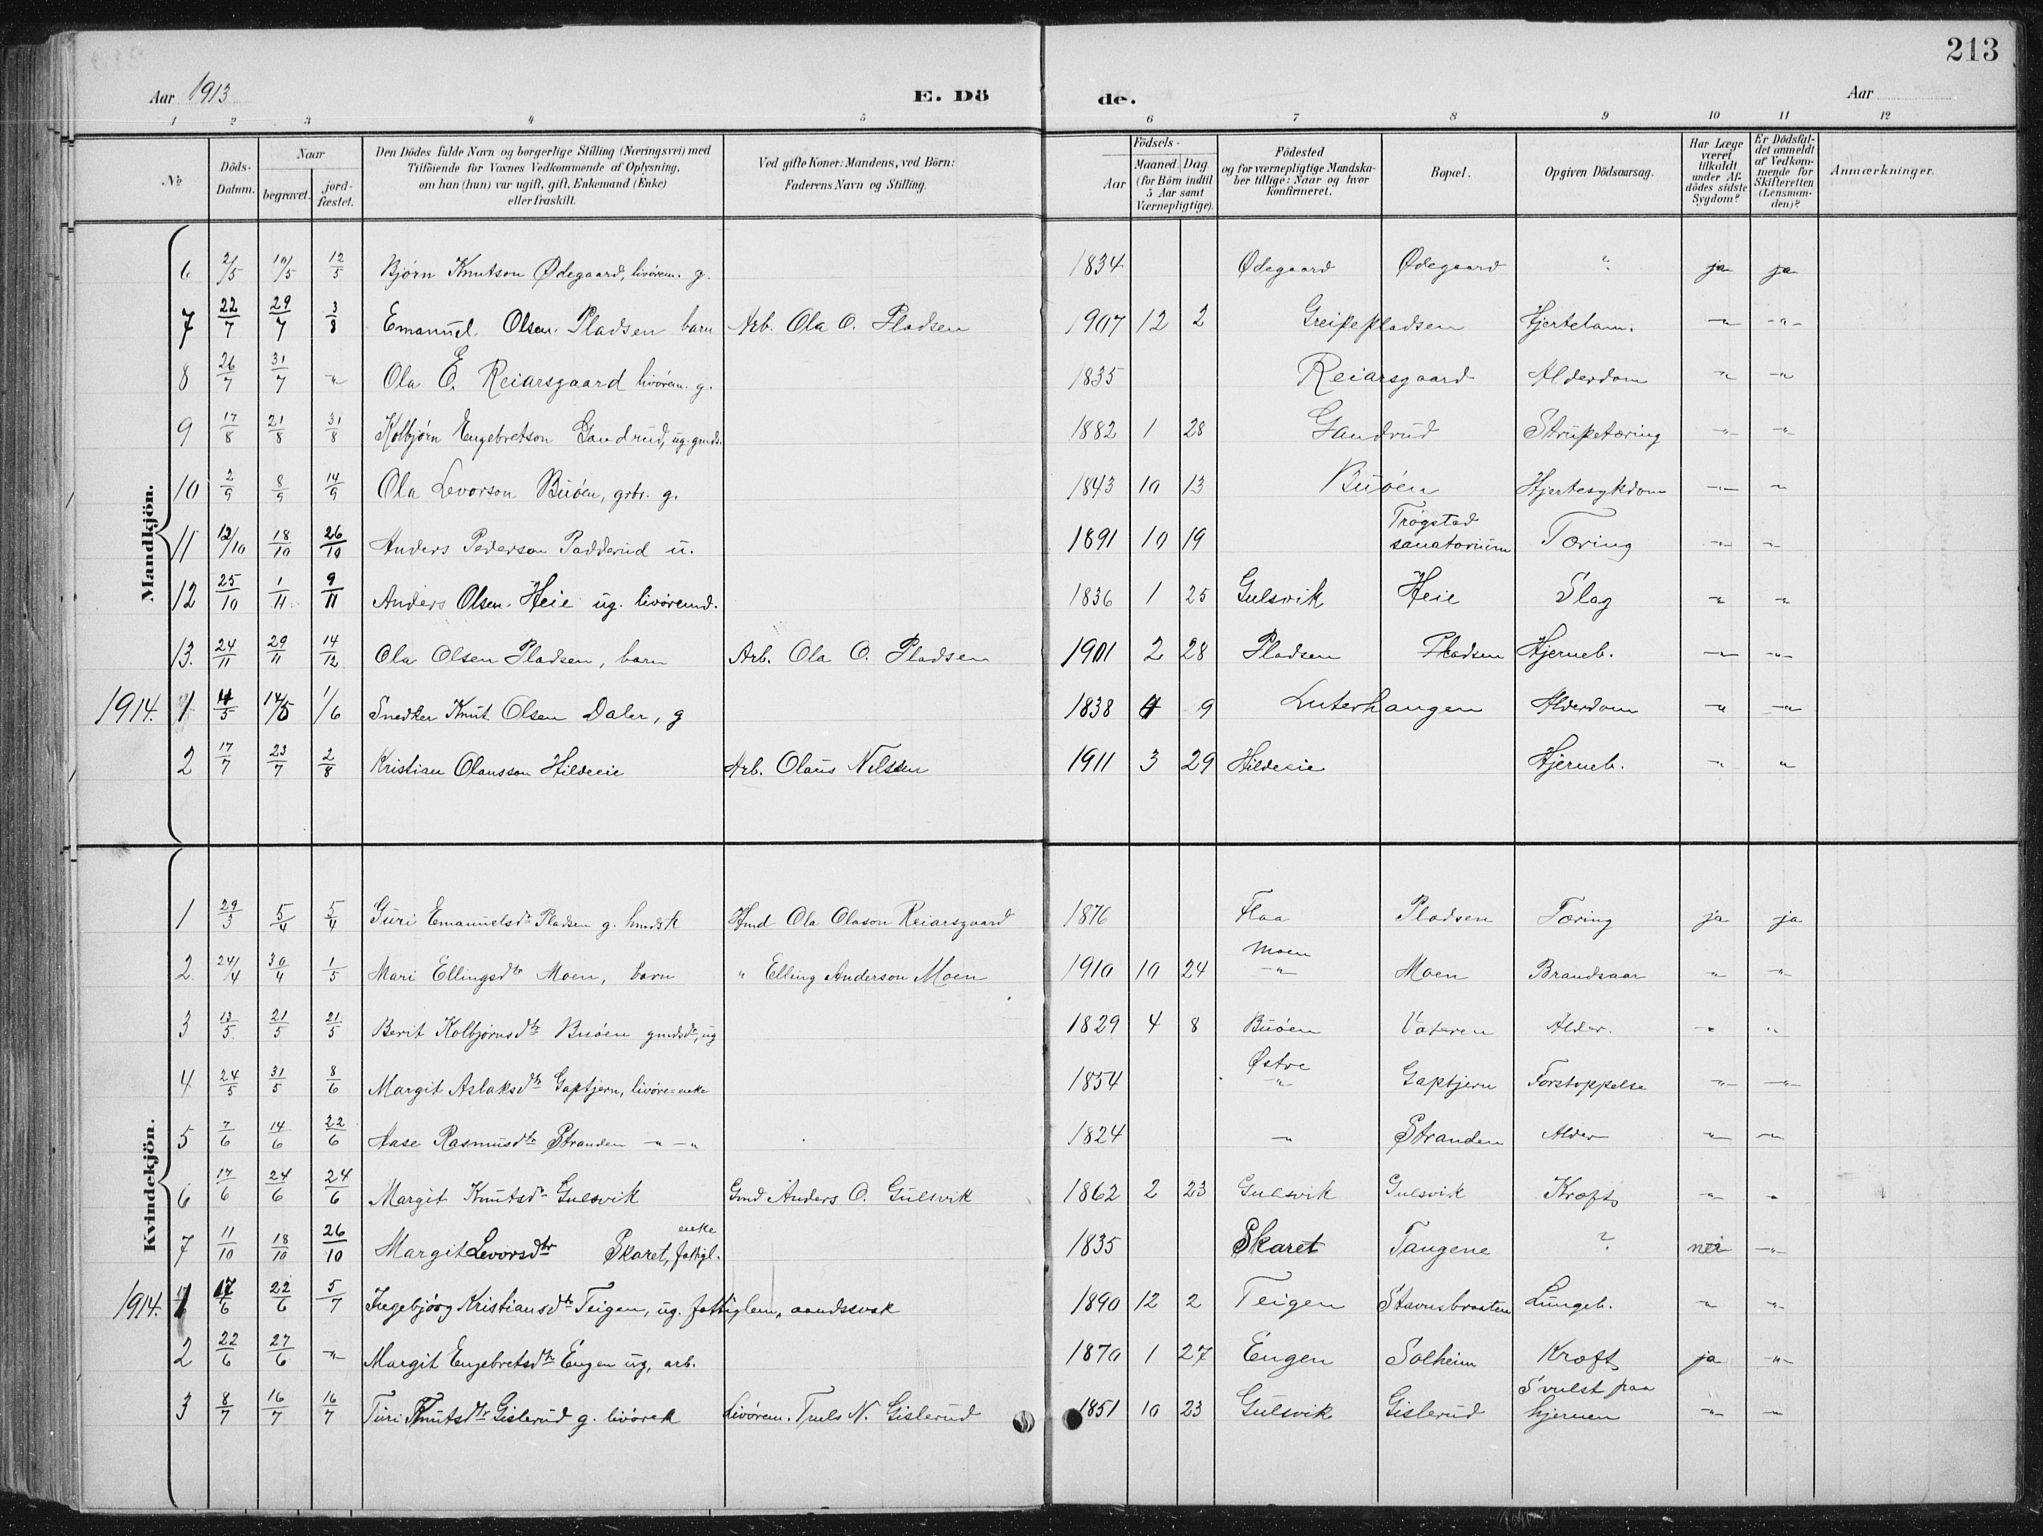 213
Aar 1913
E. Dö
de.
Aar
1 2 3 4 5 6 7 8 9 10 11 12
No
Döds-Datum.
Naar
begravet.
jord-fæstet.
Den Dödes fulde Navn og borgerlige Stilling (Næringsvei) med
Tilföiende for Voxnes Vedkommende af Oplysning,
om han (hun) var ugift, gift, Enkemand (Enke)
eller fraskilt.
Ved gifte Koner: Mandens, ved Börn:
Faderens Navn og Stilling.
Födsels-
Aar
Maaned. Dag
(for Börn indtil
5 Aar samt
Værnepligtige).
Födested
og for værnepligtige Mandska-
ber tillige: Naar og hvor
konfirmeret.
Bopæl.
Opgiven Dödsaarsag.
Har Læge
været
tilkaldt
under Af-
dödes sidste
Sygdom?
Er Dödsfal-
det anmeldt
af Vedkom-
mende for
Skifteretten
(Lensman-
den)?
Anmærkninger.
Mandkjön.
6 2/5 10/5 12/5 Bjørn Knutson Ødegaard, livörem. g. 1834 Ødegaard Ødegaard ? ja ja
7 22/7 29/7 3/8 Emanuel Olsen Pladsen barn Arb. Ola O. Pladsen 1907 12 2 Greipepladsen Hjertelam. -"- -"-
8 26/7 31/7 -"- Ola E. Reiarsgaard livörem. g. 1835 Reiarsgaard Alderdom -"- -"-
9 17/8 21/8 31/8 Kolbjørn Engebretson Gandrud, ug. gmds. 1882 1 28 Gandrud Strupetæring -"- -"-
10 2/9 8/9 14/9 Ola Levorson Buöen, grbr. g. 1843 10 13 Buöen Hjertesykdom -"- "
11 12/10 18/10 26/10 Anders Pederson Padderud u. 1891 10 19 Trøgstad sanatorium Tæring -"- -"-
12 25/10 1/11 9/11 Anders Olsen Heie ug. livöremd. 1836 1 25 Gulsvik Heie Slag -"- -"-
13. 24/11 29/11 14/12 Ola Olsen Pladsen, barn Arb. Ola O. Pladsen 1901 2 28 Pladsen Pladsen Hjerneb. -"- -"-
1914. 1 4/5 14/5 1/6 Snedker Knut Olsen Daler, g 1838 4 9 Luterhaugen Alderdom -"- -"-
2 17/7 23/7 2/8 Kristian Olausson Hildeeie Arb. Olaus Nilssen 1911 3 29 Hildeeie Hjerneb. -"- "
Kvindekjön.
1 29/3 5/4 5/4 Guri Emanuelsdtr Pladsen g. hmdsk Hmd Ola Olason Reiarsgaard 1876 Flaa Pladsen Tæring ja ja
2. 24/4 30/4 1/5 Mari Ellingsdtr Moen, barn " Elling Anderson Moen 1910 10 24 Moen -"- Moen Brandsaar " -"-
3 13/5 21/5 21/5 Berit Kolbjørnsdtr Buöen gmdsdtr, ug 1829 4 8 Buöen Vateren Alder. -"- "
4 24/5 31/5 8/6 Margit Aslaksdtr Gaptjern, livöre=enke 1854 Østre -"- Gaptjern Forstoppelse -"- -"-
5 7/6 14/6 22/6 Aase Rasmusdtr Stranden -"-"- 1824 -"- Stranden Alder -"- -"-
6 17/6 24/6 24/6 Margit Knutsdtr Gulsvik Gmd Anders O. Gulsvik 1862 2 23 Gulsvik Gulsvik Kræft -"- "
7 11/10 18/10 26/10 Margit Levorsdtr Skaret, enke fattigl. 1835 Skaret Tangene ? nei -"-
1914. 1 17/6 22/6 5/7 Ingebjørg Kristiansdtr Teigen, ug. fattiglem, aandssvak 1890 12 2 Teigen Stavnsbraaten Lungeb. -"- -"-
2 22/6 27/6 -"- Margit Engebretsdtr Engen ug, arb. 1870 1 27 Engen Solheim Kræft ja -"-
3 8/7 16/7 16/7 Turi Knutsdtr Gislerud g. livörek Livörem. Truls N. Gislerud 1851 10 23 Gulsvik Gislerud Svulst paa hjernen -"- -"-